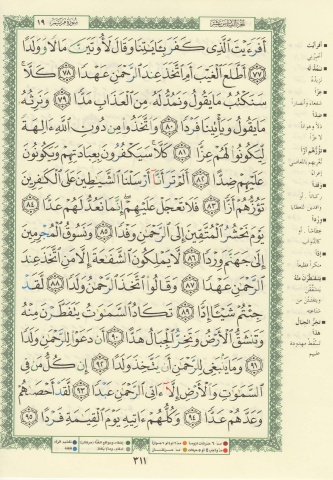 سورة مريم ١٩
أَفَرَءَيْتَ ٱلَّذِى كَفَرَ بِـَٔايَـٰتِنَا وَقَالَ لَأُوتَيَنَّ مَالًا وَوَلَدًا
﴿٧٧﴾ أَطَّلَعَ ٱلْغَيْبَ أَمِ ٱتَّخَذَ عِندَ ٱلرَّحْمَـٰنِ عَهْدًا ﴿٧٨﴾ كَلَّا
سَنَكْتُبُ مَا يَقُولُ وَنَمُدُّ لَهُۥ مِنَ ٱلْعَذَابِ مَدًّا ﴿٧٩﴾ وَنَرِثُهُۥ
مَا يَقُولُ وَيَأْتِينَا فَرْدًا ﴿٨٠﴾ وَٱتَّخَذُوا۟ مِن دُونِ ٱللَّهِ ءَالِهَةً
لِّيَكُونُوا۟ لَهُمْ عِزًّا ﴿٨١﴾ كَلَّا سَيَكْفُرُونَ بِعِبَادَتِهِمْ وَيَكُونُونَ
عَلَيْهِمْ ضِدًّا ﴿٨٢﴾ أَلَمْ تَرَ أَنَّآ أَرْسَلْنَا ٱلشَّيَـٰطِينَ عَلَى ٱلْكَـٰفِرِينَ
تَؤُزُّهُمْ أَزًّا ﴿٨٣﴾ فَلَا تَعْجَلْ عَلَيْهِمْ إِنَّمَا نَعُدُّ لَهُمْ عَدًّا ﴿٨٤﴾
يَوْمَ نَحْشُرُ ٱلْمُتَّقِينَ إِلَى ٱلرَّحْمَـٰنِ وَفْدًا ﴿٨٥﴾ وَنَسُوقُ ٱلْمُجْرِمِينَ
إِلَىٰ جَهَنَّمَ وِرْدًا ﴿٨٦﴾ لَّا يَمْلِكُونَ ٱلشَّفَـٰعَةَ إِلَّا مَنِ ٱتَّخَذَ عِندَ
ٱلرَّحْمَـٰنِ عَهْدًا ﴿٨٧﴾ وَقَالُوا۟ ٱتَّخَذَ ٱلرَّحْمَـٰنُ وَلَدًا ﴿٨٨﴾ لَّقَدْ
جِئْتُمْ شَيْـًٔا إِدًّا ﴿٨٩﴾ تَكَادُ ٱلسَّمَـٰوَٰتُ يَتَفَطَّرْنَ مِنْهُ
وَتَنشَقُّ ٱلْأَرْضُ وَتَخِرُّ ٱلْجِبَالُ هَدًّا ﴿٩٠﴾ أَن دَعَوْا۟ لِلرَّحْمَـٰنِ وَلَدًا
﴿٩١﴾ وَمَا يَنۢبَغِى لِلرَّحْمَـٰنِ أَن يَتَّخِذَ وَلَدًا ﴿٩٢﴾ إِن كُلُّ مَن فِى
ٱلسَّمَـٰوَٰتِ وَٱلْأَرْضِ إِلَّآ ءَاتِى ٱلرَّحْمَـٰنِ عَبْدًا ﴿٩٣﴾ لَّقَدْ أَحْصَىٰهُمْ
وَعَدَّهُمْ عَدًّا ﴿٩٤﴾ وَكُلُّهُمْ ءَاتِيهِ يَوْمَ ٱلْقِيَـٰمَةِ فَرْدًا ﴿٩٥﴾
أفرأيت
أخبرني
نمد له
عزا
ضدا
تؤزهم أزا
وفدا
وردا
إدا
منكرا فظيعا
يتفطرن منه
تخر الجبال
تسقط مهدودة
عليهم
٣١١